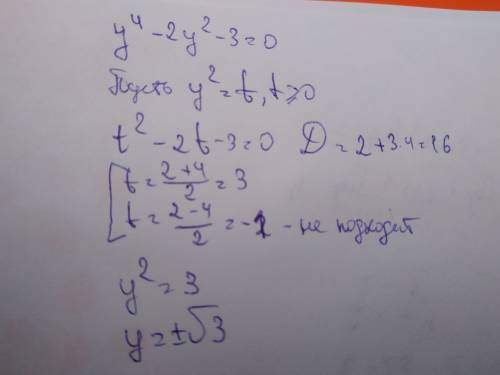 y⁴ - 2y² - 3 = 0
Пусть y² = t, t ≥ 0
t² - 2t - 3 = 0 D = 2 + 3·4 = 16
[ t = (2+4)/2 = 3
t = (2-4)/2 = -1 - не подходит
y² = 3
y = ±√3